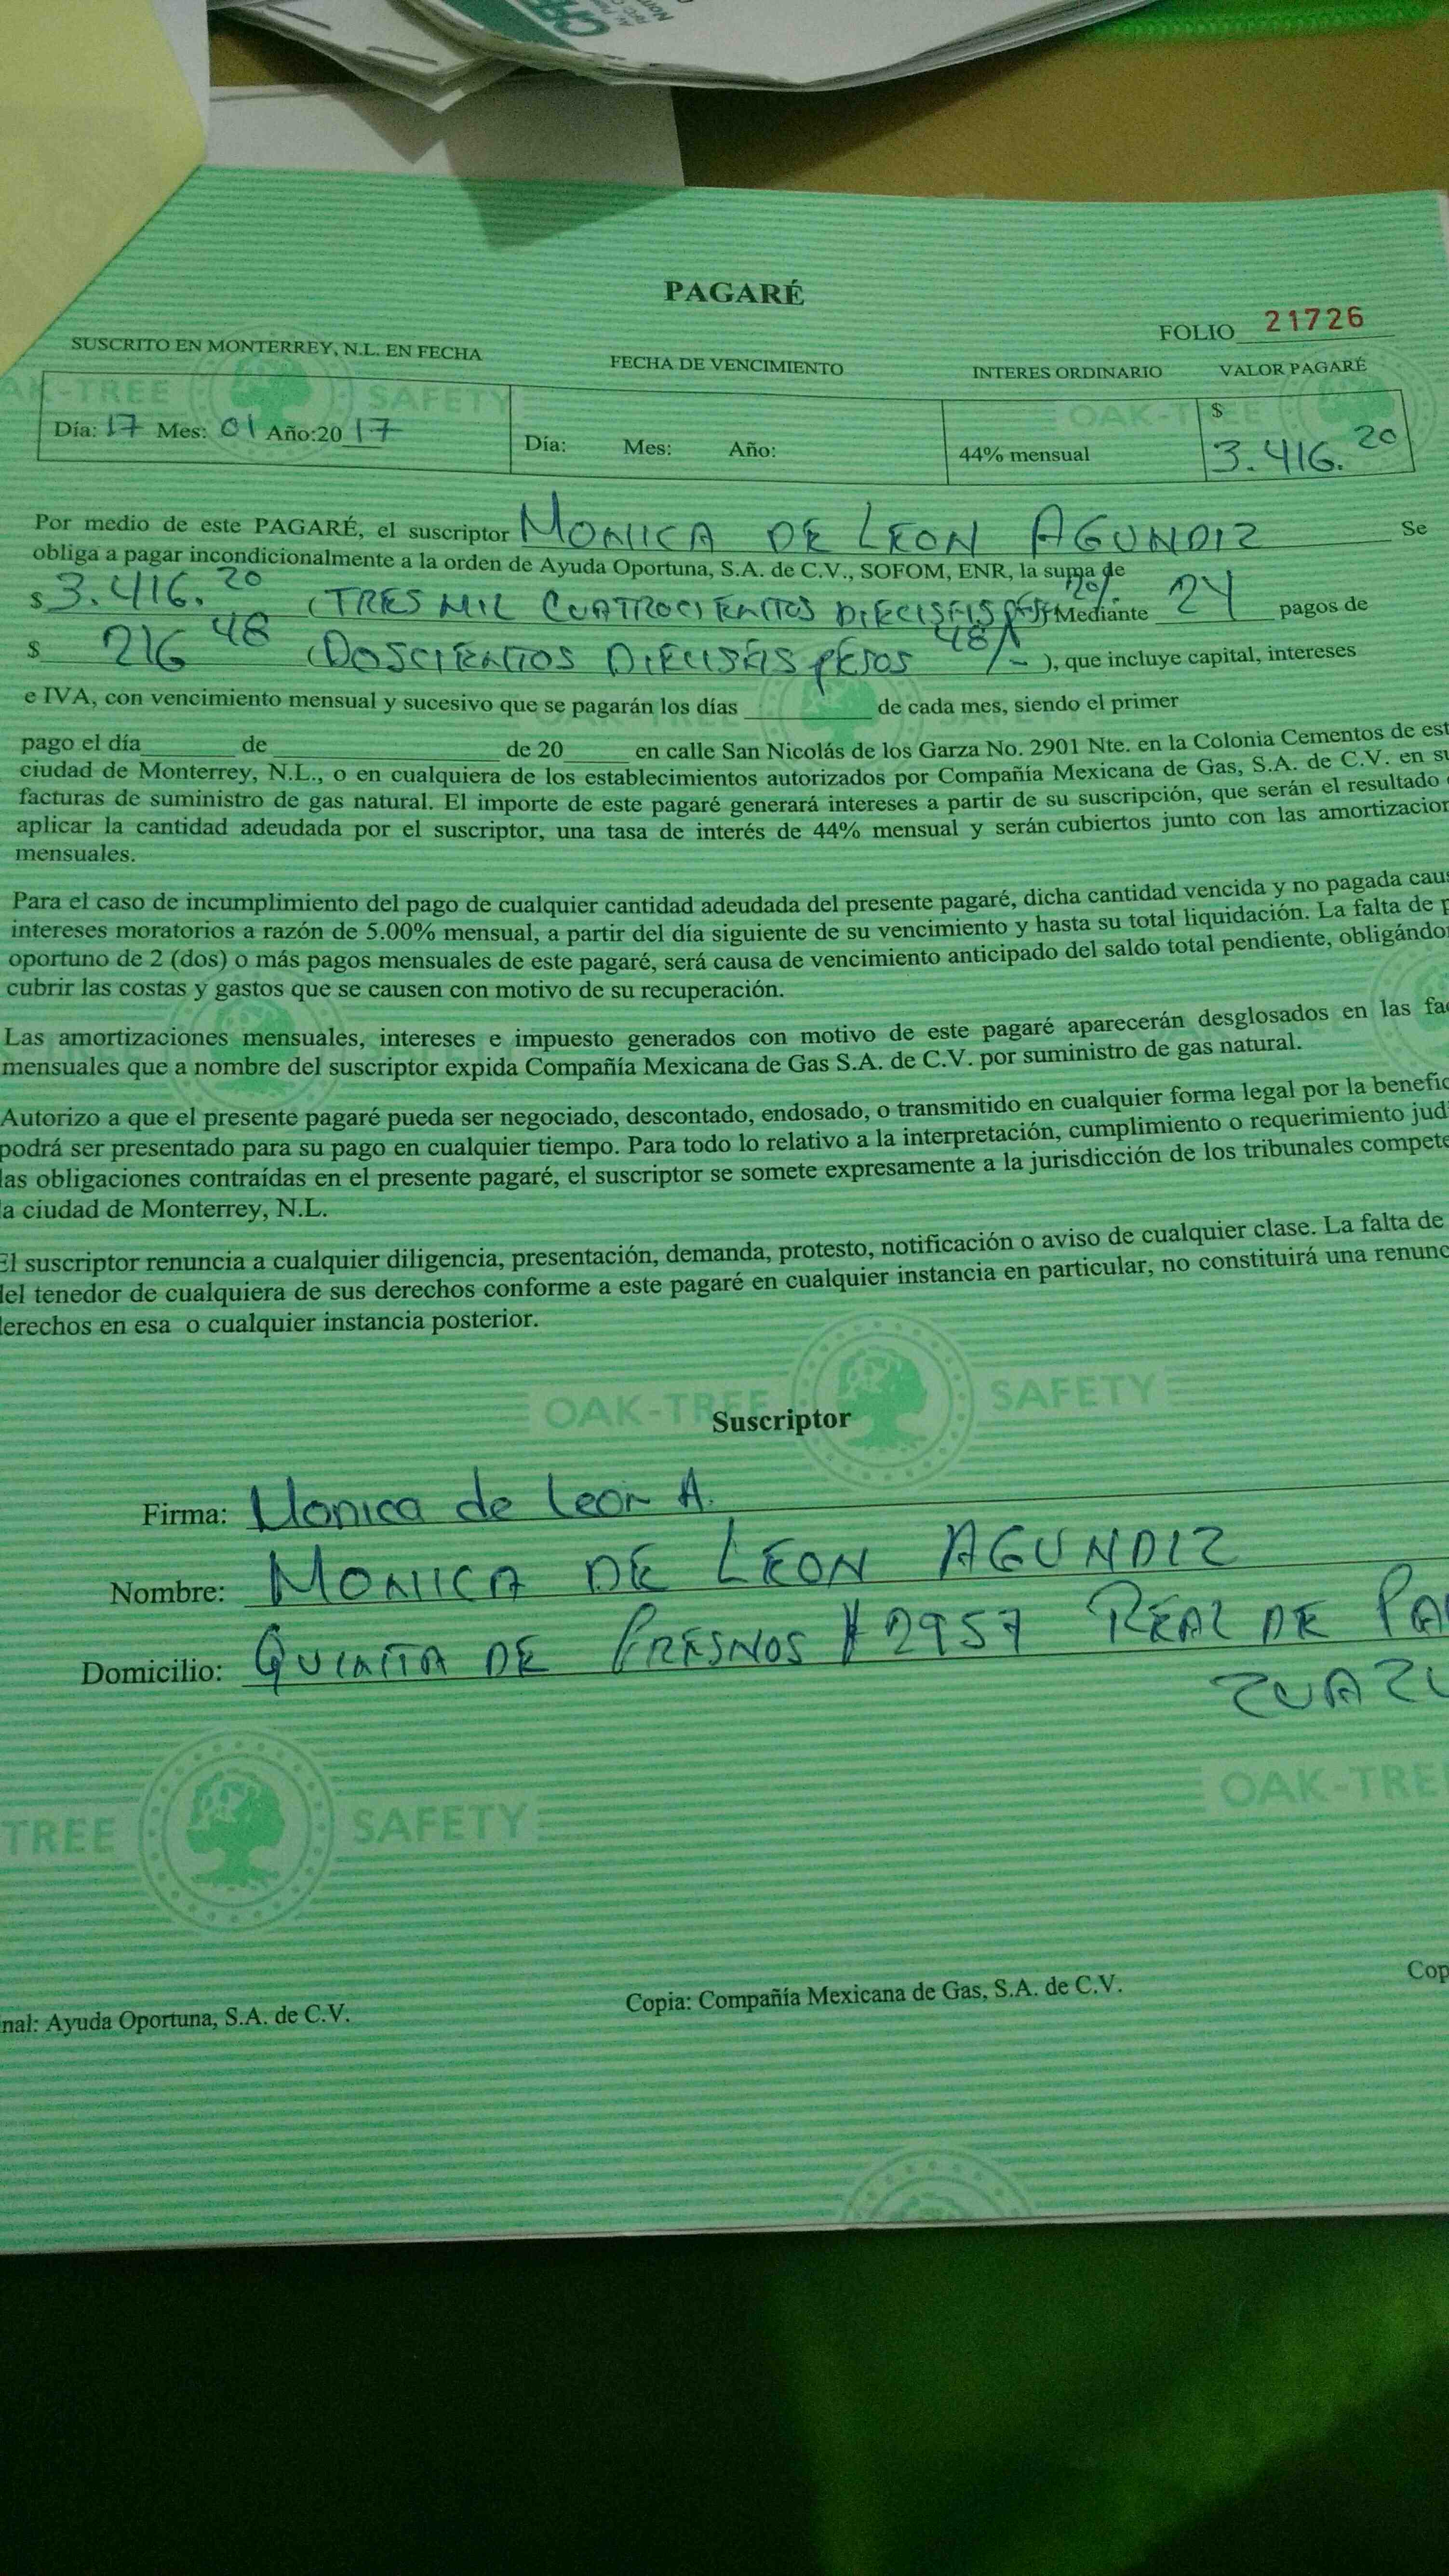 CFE
PAGARÉ
FOLIO 21726
SUSCRITO EN MONTERREY, N.L. EN FECHA
FECHA DE VENCIMIENTO
INTERES ORDINARIO
VALOR PAGARÉ
Día: 17 Mes: 01 Año:2017
Día: Mes: Año:
44% mensual
$ 3.416.20
Por medio de este PAGARÉ, el suscriptor MONICA DE LEON AGUNDIZ Se
obliga a pagar incondicionalmente a la orden de Ayuda Oportuna, S.A. de C.V., SOFOM, ENR, la suma de
$ 3.416.20 (TRES MIL CUATROCIENTOS DIECISEIS Mediante 24 pagos de
$ 216 48 (DOSCIENTOS DIECISEIS PESOS 48/-), que incluye capital, intereses
e IVA, con vencimiento mensual y sucesivo que se pagarán los días de cada mes, siendo el primer
pago el día de de 20 en calle San Nicolás de los Garza No. 2901 Nte. en la Colonia Cementos de est
ciudad de Monterrey, N.L., o en cualquiera de los establecimientos autorizados por Compañía Mexicana de Gas, S.A. de C.V. en su
facturas de suministro de gas natural. El importe de este pagaré generará intereses a partir de su suscripción, que serán el resultado
aplicar la cantidad adeudada por el suscriptor, una tasa de interés de 44% mensual y serán cubiertos junto con las amortizacion
mensuales.
Para el caso de incumplimiento del pago de cualquier cantidad adeudada del presente pagaré, dicha cantidad vencida y no pagada caus
intereses moratorios a razón de 5.00% mensual, a partir del día siguiente de su vencimiento y hasta su total liquidación. La falta de p
oportuno de 2 (dos) o más pagos mensuales de este pagaré, será causa de vencimiento anticipado del saldo total pendiente, obligándo
cubrir las costas y gastos que se causen con motivo de su recuperación.
Las amortizaciones mensuales, intereses e impuesto generados con motivo de este pagaré aparecerán desglosados en las fac
mensuales que a nombre del suscriptor expida Compañía Mexicana de Gas S.A. de C.V. por suministro de gas natural.
Autorizo a que el presente pagaré pueda ser negociado, descontado, endosado, o transmitido en cualquier forma legal por la benefic
podrá ser presentado para su pago en cualquier tiempo. Para todo lo relativo a la interpretación, cumplimiento o requerimiento jud
las obligaciones contraídas en el presente pagaré, el suscriptor se somete expresamente a la jurisdicción de los tribunales compete
la ciudad de Monterrey, N.L.
El suscriptor renuncia a cualquier diligencia, presentación, demanda, protesto, notificación o aviso de cualquier clase. La falta de
del tenedor de cualquiera de sus derechos conforme a este pagaré en cualquier instancia en particular, no constituirá una renunc
derechos en esa o cualquier instancia posterior.
OAK-TREE SAFETY
Suscriptor
Firma: Monica de leon A.
Nombre: MONICA DE LEON AGUNDIZ
Domicilio: QUINTA DE FRESNOS # 2957 REAL DE PA
ZUAZU
OAK-TREE
TREE SAFETY
Cop
Copia: Compañía Mexicana de Gas, S.A. de C.V.
nal: Ayuda Oportuna, S.A. de C.V.